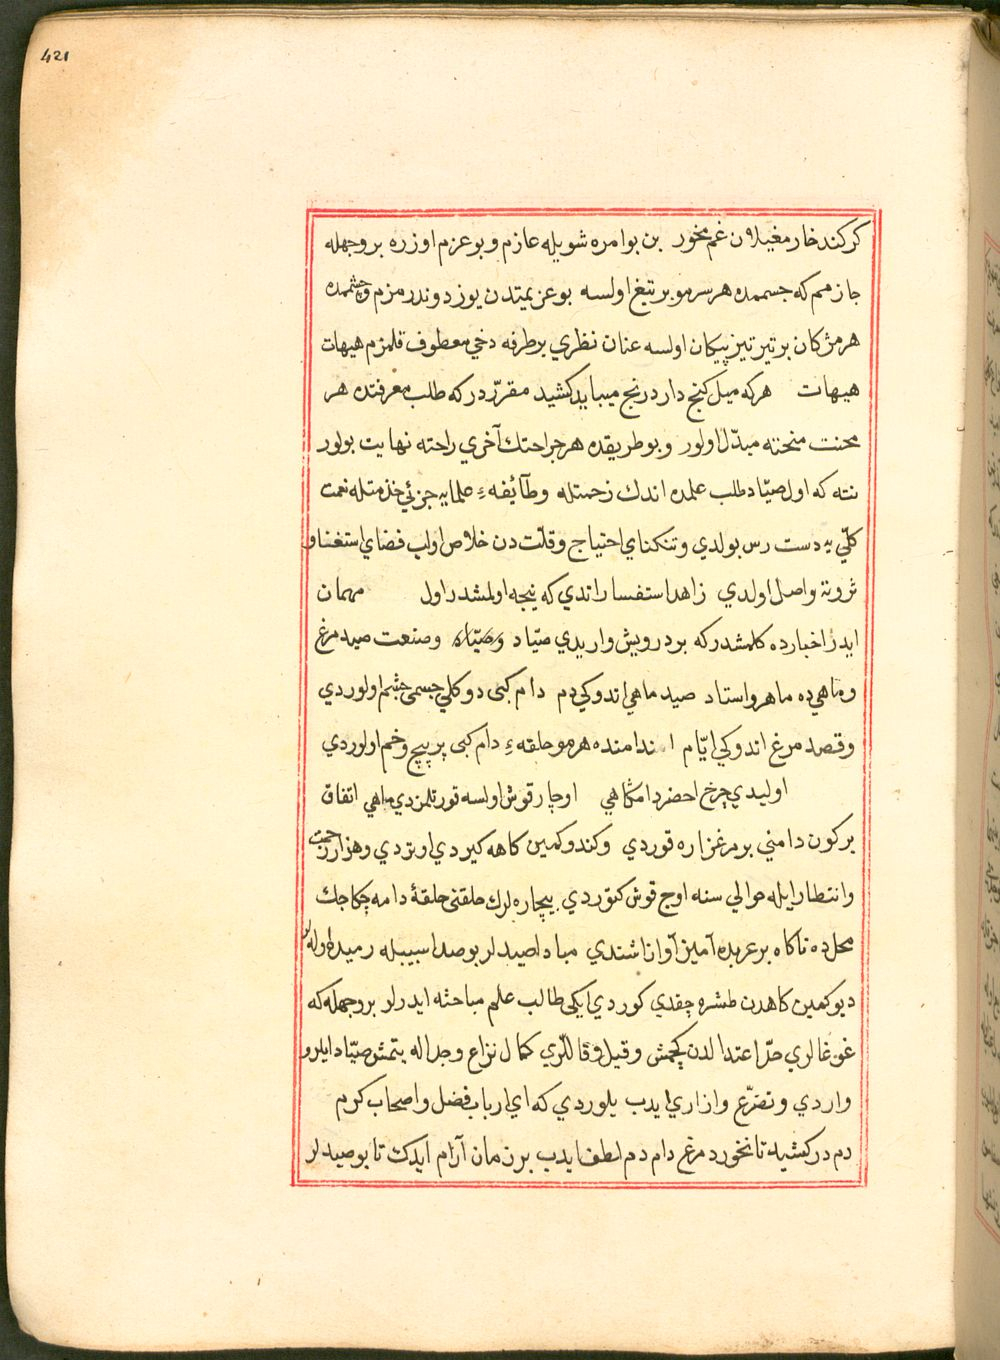 421
كر كند خار مغيلان غم مخور بن بو امره شويله عازم و بو عزم اوزره بر وجهله
جازمم كه جسممده هر سر مو بر تيغ اولسه بو عزيمتدن يوز دوندرمزم و چشممده
هر مژكان بر تير تيز پيكان اولسه عنان نظري بر طرفه دخي معطوف قلمزم هيهات
هيهات هر كه ميل كنج دارد رنج ميبايد كشيد مقرّردر كه طلب معرفتده هر
محنت منحته مبدّل اولور و بو طريقده هر جراحتك آخري راحته نهايت بولور
نته كه اول صيّاد طلب علمده اندك زحمتله و طآئفهء علمايه جزئي خذمتله نعمت
كلّي يه دست رس بولدي و تنكناي احتياج و قلّت دن خلاص اولب فضاي استغنا و
ثروته واصل اولدي زاهد استفسار اتدي كه نيجه اولمشدر اول مهمان
ايدر اخبارده كلمشدر كه بر درويش وار يدي صيّاد و صنعت صيد مرغ
و ماهي ده ماهر و استاد صيد ماهي اندوكي دم دام كبى دوكلي جسمى چشم اولوردي
و قصد مرغ اندوكي ايّام اندامنده هر مو حلقهء دام كبى پر پيچ و خم اولوردي
اوليدي چرخ اخضر دامكاهي اوچار قوش اولسه قورتلمزدي ماهي اتفاق
بر كون دامني بر مرغزاره قوردي و كندو كمين كاهه كيردي اوتردي و هزار زحمت
و انتظار ايله حوالي سنه اوج قوش كتوردي بيچاره لرك حلقنى حلقهٔ دامه چكاجك
محلده ناكاه بر عربده آميز آواز اشتدي مبادا صيدلر بو صدا سببيله رميده اوله لر
ديو كمين كاهدن طشره چقدي كوردي ايكى طالب علم مباحثه ايدرلر بر وجهله كه
غوغالري حدّ اعتدالدن كچمش و قيل و قاللري كمال نزاع و جداله يتمش صيّاد ايلرو
واردي و تضرّع و ازاري ايدب يلوردي كه اي ارباب فضل و اصحاب كرم
دم در كشيد تا نخورد مرغ دام دم لطف ايدب بر زمان آرام ايدك تا بو صيدلر